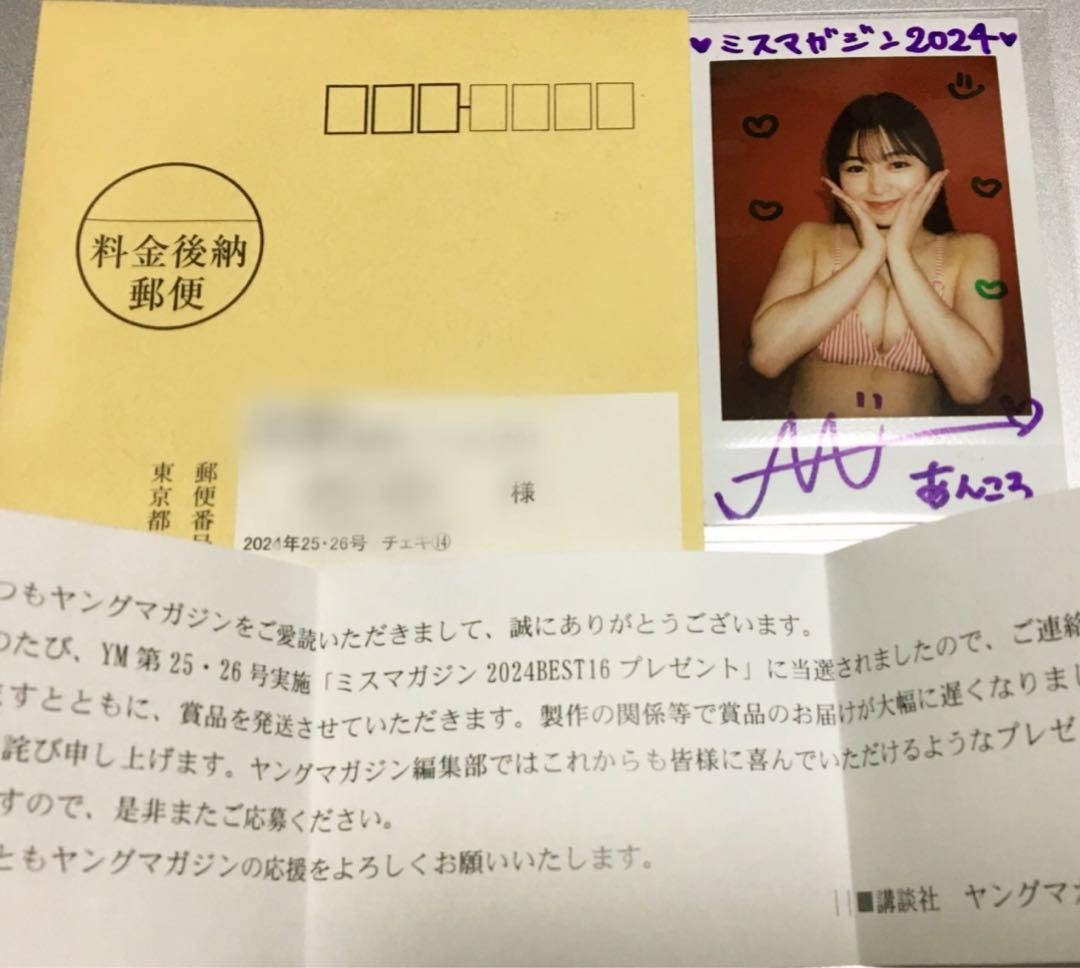 料金後納
郵便
郵便番号
東京都
様
2024年25・26号 チェキ⑭
ミスマガジン2024
あんころ
つもヤングマガジンをご愛読いただきまして、誠にありがとうございます。
のたび、YM第25・26号実施「ミスマガジン2024BEST16プレゼント」に当選されましたので、ご連絡
ますとともに、賞品を発送させていただきます。製作の関係等で賞品のお届けが大幅に遅くなりまし
詫び申し上げます。ヤングマガジン編集部ではこれからも皆様に喜んでいただけるようなプレゼ
すので、是非またご応募ください。
ともヤングマガジンの応援をよろしくお願いいたします。
■講談社 ヤングマガ